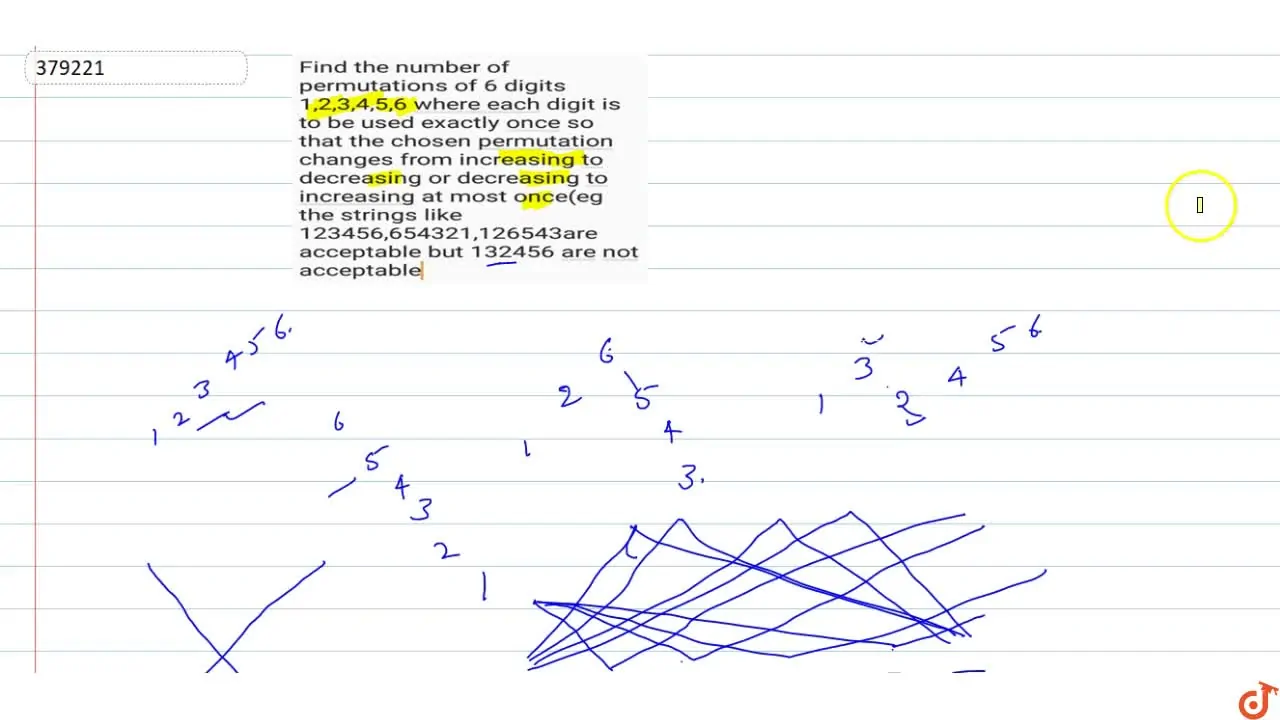 379221
Find the number of
permutations of 6 digits
1,2,3,4,5,6 where each digit is
to be used exactly once so
that the chosen permutation
changes from increasing to
decreasing or decreasing to
increasing at most once(eg
the strings like
123456,654321,126543are
acceptable but 132456 are not
acceptable
1 2 3 4 5 6.
6 5 4 3 2 1
1 2 6 5 4 3.
1 3 2 4 5 6